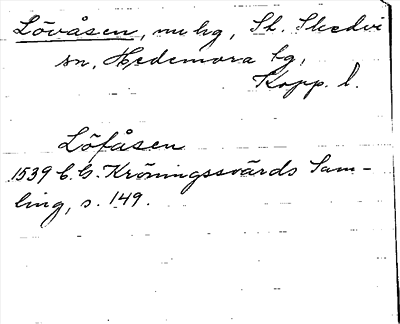 Lövåsen, nu hg, St. Skedvi
sn, Hedemora bg,
Kopp. l.
Löfåsen
1539 C. G. Kröningssvärds Sam-
ling, s. 149.